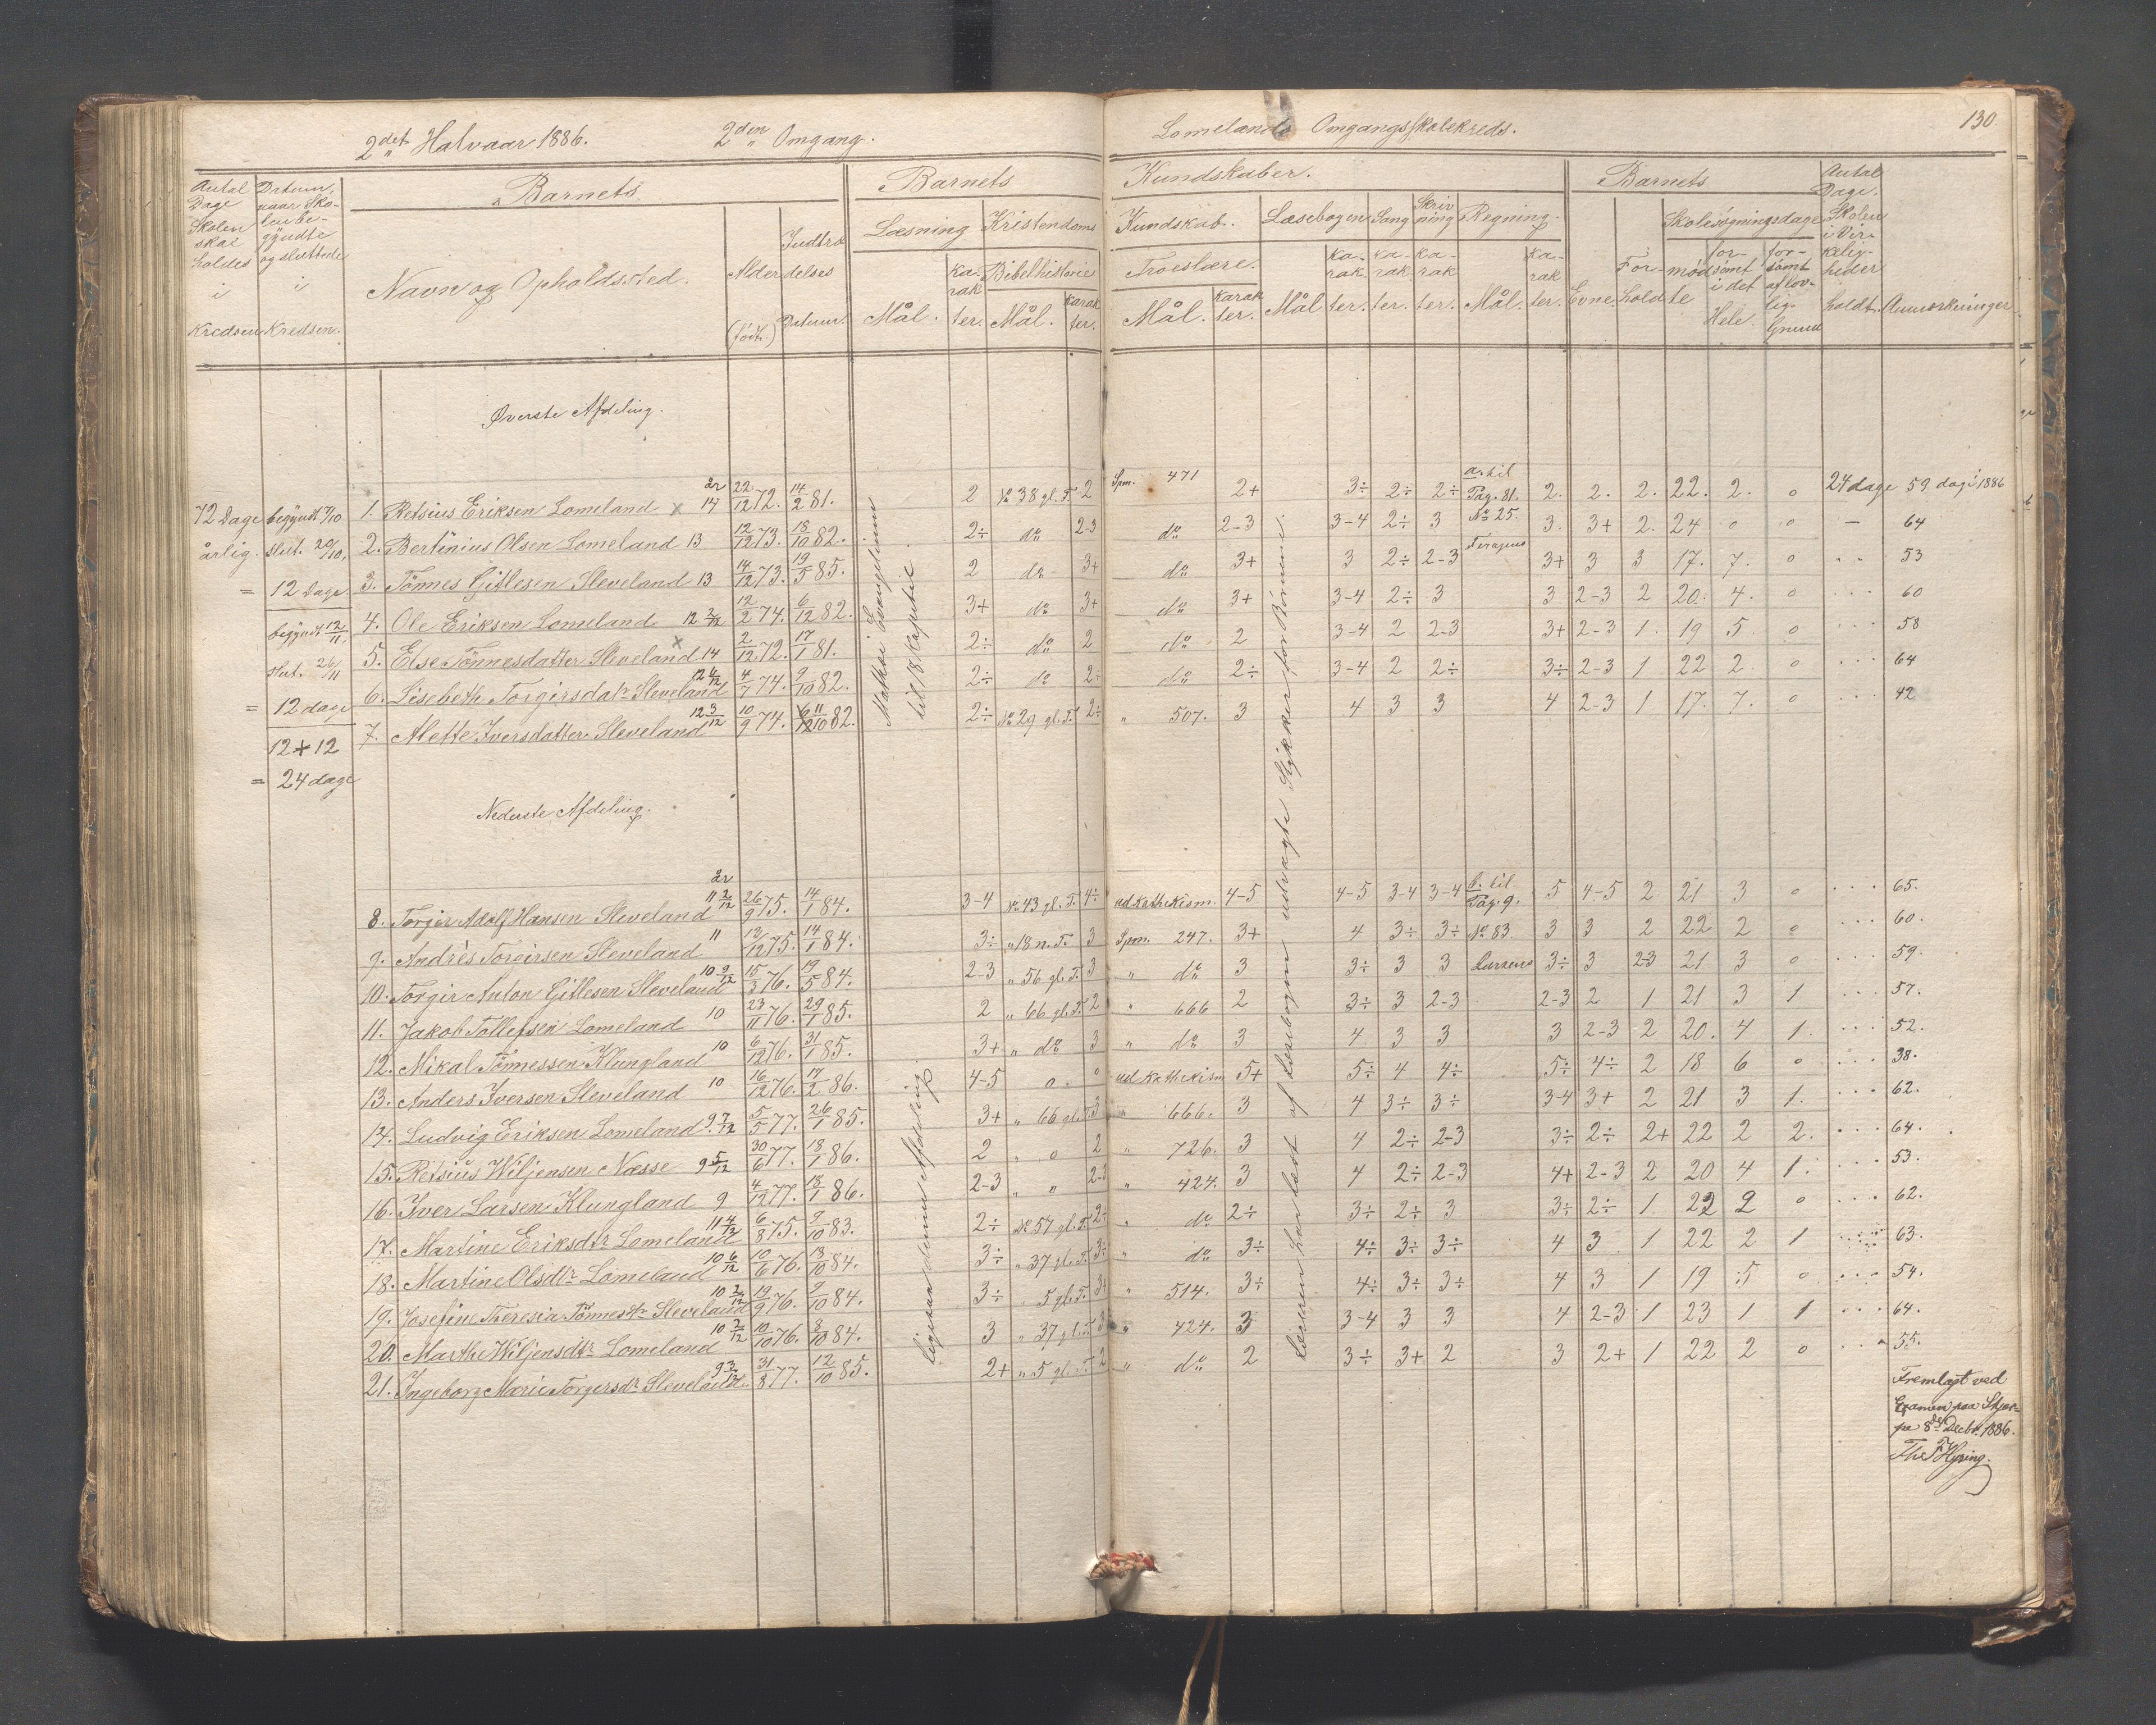 2det Halvaar 1886. 2den Omgang.
Lomelands Omgangsskolekreds. 130
Antal Dage Skolen skal holdes i Kredsen
Datum, naar Skolen begyndte og sluttede i Kredsen.
Barnets
Navn og Opholdssted.
Alder (født.)
Indtrædelses Datum.
Barnets Kundskaber.
Læsning
Mål. Karakter.
Kristendoms Kundskab.
Bibelhistorie
Mål. Karakter.
Troeslære.
Mål. Karakter.
Læsebogen
Mål Karakter.
Sang Karakter.
Skrivning Karakter.
Regning.
Mål. Karakter.
Barnets
Evne. Forhold
Skolesøgningsdage
mødte
forsømt i det Hele.
forsømt af lovlig Grund
Antal Dage. Skolen i Virkeligheden holdt.
Anmærkninger
Øverste Afdeling.
72 Dage årlig.
begyndt 7/10
slut. 20/10.
= 12 Dage
begyndt 12/11.
slut. 26/11
= 12 dage
12+12
= 24 dage
Mathæi Evangelium til 18 Kapitel
Læreren har læst af Læsebogen udvalgte Stykker for Børnene.
1. Retsius Eriksen Lomeland x år 14 22/12 72. 14/2 81. 2 No 38 gl. T. 2 Spm. 471 2+ 3÷ 2÷ 2÷ a. til Pag. 81. 2. 2. 2. 22. 2. 0 24 dage 59 dag i 1886
2. Bertinius Olsen Lomeland 13 12/12 73. 18/10 82. 2÷ do 2-3 do 2-3 3-4 2÷ 3 No 25. 3. 3+ 2. 24 0 0 — 64
3. Tönnes Gitlesen Sleveland 13 14/12 73. 19/5 85. 2 do 3+ do 3+ 3 2÷ 2-3 3+ 3 3 17. 7. 0 53
4. Ole Eriksen Lomeland 12 12/2 74. 6/12 82. 3+ do 3+ do 3+ 3-4 2÷ 3 3 2-3 2 20. 4. 0 60
5. Else Tönnesdatter Sleveland x 14 2/12 72. 17/1 81. 2÷ do 2 do 2 3-4 2 2-3 3+ 2-3 1. 19 5. 0 58
6. Lisebeth Torgirsdatr Sleveland 4/7 74. 9/10 82. 2÷ do 2÷ do 2÷ 3-4 2 2÷ 3÷ 2-3 1 22 2. 0 64
7. Alette Iversdatter Sleveland 12 3/12 10/9 74. 82. 2÷ No 29 gl. T. 2÷ „ 507. 3 4 3 3 4 2-3 1 17. 7. 0 42
Nederste Afdeling.
ligesaa denne Afdeling.
8. Torgir Adolf Hansen Sleveland år 11 2/12 26/9 75. 14/1 84. 3-4 No 43 gl. T. 4÷ ud Kathekism. 4-5 4-5 3-4 3-4 b. til Pag. 9. 5 4-5 2 21 3 0 65.
9. Andrés Torgirsen Sleveland 11 75. 14/1 84. 3÷ „ 18 n. T. 3 Spm. 247. 3+ 4 3÷ 3÷ No 83 3 3 2 22 2 0 60.
10. Torgir Anton Gitlesen Sleveland 10 9/12 15/3 76. 19/5 84. 2-3 „ 56 gl. T. 3 „ do 3 3÷ 3 3 Larsens 3÷ 3 2-3 21 3 0 59.
11. Jakob Tollefsen Lomeland 10 23/11 76. 29/1 85. 2 „ 66 gl. T. 2 „ 666 2 3÷ 3 2-3 2-3 2 1 21 3 1 57.
12. Mikal Tönnessen Klungland 10 6/12 76. 31/1 85. 3+ „ do 3 „ do 3 4 3 3 3 2-3 2 20. 4 1. 52.
13. Anders Iversen Sleveland 10 16/12 76. 17/2 86. 4-5 0 0 ud Kathekism 5+ 5÷ 4 4÷ 5÷ 4÷ 2 18 6 0 38.
14. Ludvig Eriksen Lomeland 9 7/12 5/5 77. 26/1 85. 3+ „ 66 gl. T. 3 „ 666. 3 4 3÷ 3÷ 3-4 3+ 2 21 3 1. 62.
15. Retsius Wiljensen Næsse 9 5/12 30/6 77. 18/1 86. 2 „ 0 2 „ 726. 3 4 2÷ 2-3 3÷ 2÷ 2+ 22 2 2. 64.
16. Iver Larsen Klungland 9 4/12 77. 18/1 86. 2-3 „ 0 2-3 „ 424. 3 4 2÷ 2-3 4+ 2-3 2 20 4 1. 53.
17. Martine Eriksdtr Lomeland 11 4/12 6/8 75. 9/10 83. 2÷ No 57 gl. T. 2÷ „ do 2÷ 3÷ 2÷ 3 3÷ 2÷ 1. 22 2 0 62.
18. Martine Olsdtr Lomeland 10 6/12 10/6 76. 13/10 84. 3÷ „ 37 gl. T. 3÷ „ do 3÷ 4÷ 3÷ 3÷ 4 3 1 22 2 1 63.
19. Josefine Theresia Tönnesdtr Sleveland 10 19/9 76. 9/10 84. 3÷ „ 5 gl. T. 3÷ „ 514. 3÷ 4÷ 3÷ 3+ 4 3 1 19 5 0 54.
20. Marthe Wiljensdtr Lomeland 10 2/12 10/10 76. 8/10 84. 3 „ 37 gl. T. 3 „ 424. 3 3-4 3 3 4 2-3 1 23 1 1 64.
21. Ingeborg Marie Torgersdr Sleveland 9 3/12 31/8 77. 12/10 85. 2+ „ 5 gl. T. 2 „ do 2 3÷ 3+ 2 3 2+ 1 22 2 0 55.
Fremlagt ved
Examen paa Skjær-
pe 8de Decbr. 1886.